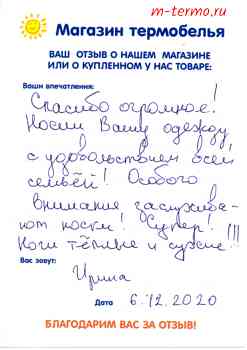 m-termo.ru
Магазин термобелья
ВАШ ОТЗЫВ О НАШЕМ МАГАЗИНЕ
ИЛИ О КУПЛЕННОМ У НАС ТОВАРЕ:
Ваши впечатления:
Спасибо огромное!
Носим Вашу одежду
с удовольствием всей
семьёй! Особого
внимания заслужива-
ют носки! Супер! !!!
Ноги тёплые и сухие!
Вас зовут:
Ирина
Дата 6.12.2020
БЛАГОДАРИМ ВАС ЗА ОТЗЫВ!